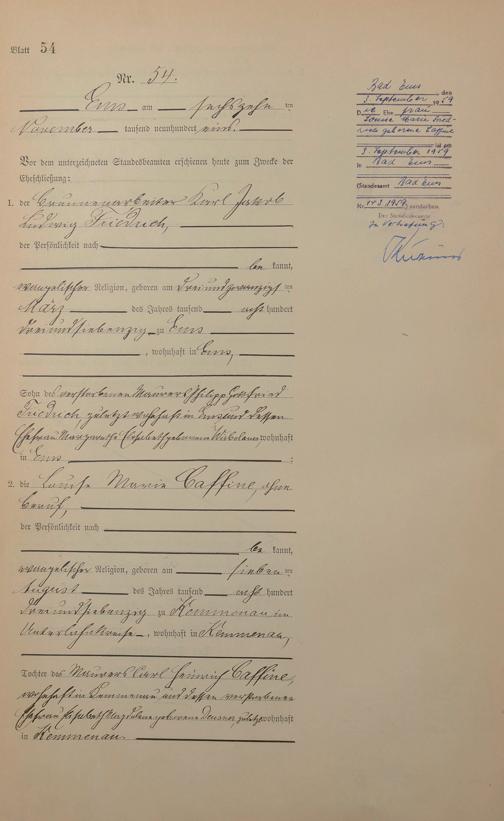 Blatt 54
Nr. 54.
Ems am sechszehn ten
November tausend neunhundert eins.
Vor dem unterzeichneten Standesbeamten erschienen heute zum Zwecke der
Eheschließung:
1. der Brunnenarbeiter Karl Jakob
Ludwig Friedrich,
der Persönlichkeit nach
be kannt,
evangelischer Religion, geboren am dreiundzwanzigsten
März des Jahres tausend acht hundert
dreiundsiebenzig zu Ems
, wohnhaft in Ems,
Sohn des verstorbenen Maurers Philipp Gottfried
Friedrich, zuletzt wohnhaft in Ems und dessen
Ehefrau Margarethe Elisabeth geborenen wohnhaft
in Ems
2. die Louise Marie Caffine, ohne
Beruf,
der Persönlichkeit nach
be kannt,
evangelischer Religion, geboren am sieben ten
August des Jahres tausend acht hundert
dreiundsiebenzig zu Kemmenau im
Unterlahnkreise, wohnhaft in Kemmenau,
Tochter des Maurers Carl Heinrich Caffine,
wohnhaft in Kemmenau und dessen verstorbenen
Ehefrau Elisabeth Magdalene geborene zuletzt wohnhaft
in Kemmenau.
Bad Ems, den
3. September 1959
Die Ehefrau
Louise Marie Fried-
rich geborene Caffine
ist am
3. September 1959
in Bad Ems
(Standesamt Bad Ems
Nr. 143/1959) verstorben.
Der Standesbeamte
In Vertretung: